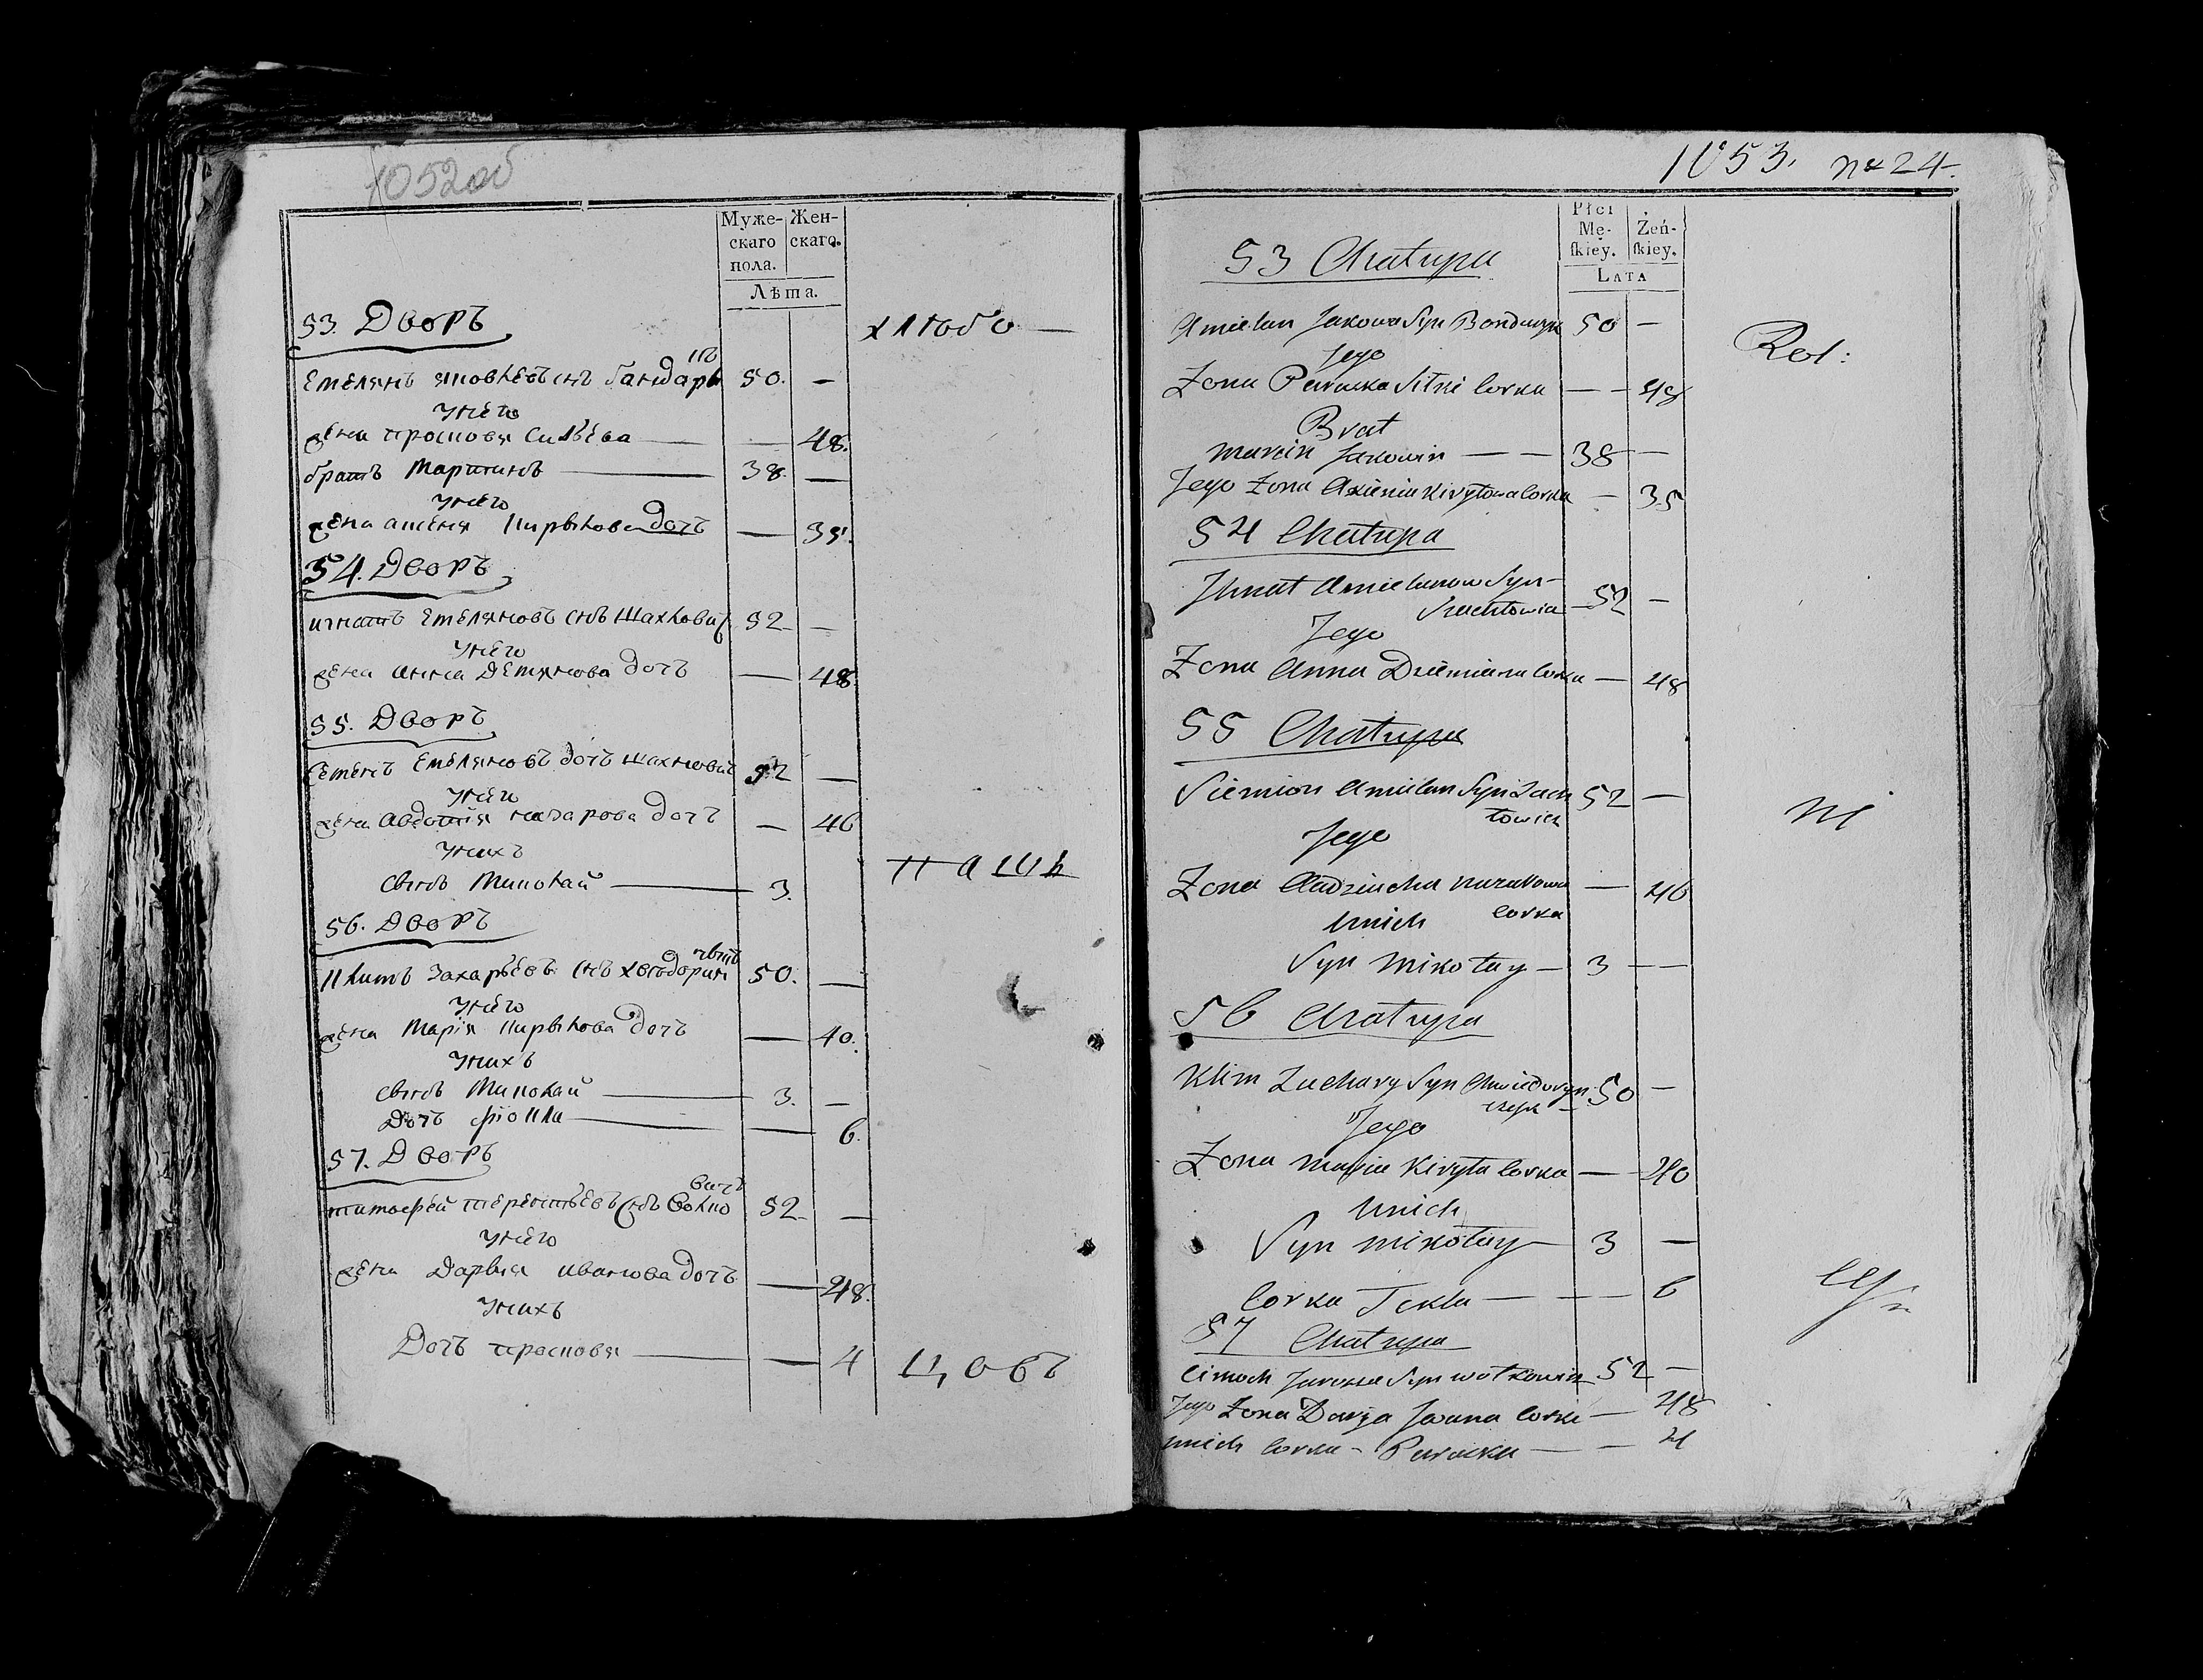 1052об
Муже- Жен-
скаго скаго.
пола.
Лѣта.
53. Дворъ
хлѣбо —
Емелянъ яковлевъ снъ Бандаръ 50. —
унего
жена просковя Силѣева — — 48.
братъ Мартинъ — 38. —
унего
жена аксеня Кирылова дочъ — 35.
54. Дворъ
игнатъ Емеляновъ снъ Шахлович 52 —
унего
жена анна Демянова дочъ — 48.
55. Дворъ
Семенъ Емеляновъ дочъ 52 —
унего
жена Авдотия назарова дочъ — 46
унихъ
сынъ Миколай — 3.
паш
56. Дворъ
Климъ Захарьевъ снъ 50. —
унего
жена Марія Кирылова дочъ — 40.
унихъ
сынъ Миколай — 3. —
дочъ — — 6.
57. Дворъ
вичъ
тимофей снъ Волко 52 —
унего
жена Дарья иванова дочъ — 48.
унихъ
Дочъ просковя — — 4
цовъ
1053. № 24.
Płci
Mę- Żeń-
ſkiey. ſkiey.
Lata
53 Chatupa
Amielan Jakowa Syn Bondarzyk 50 —
Jego
Rol:
Zona Paraska Corka — — 48
Brat
Marcin Jakowin — — 38 —
Jego Zona Axienia Kirytowa Corka — 35
54 Chatupa
Ihnat Amielanow Syn —
Szachtowicz 52 —
Jego
Zona Anna Dziemiana Corka — 48
55 Chatupa
Siemion Amielan Syn 52 —
towicz
Jego
ni
Zona Nazarowa — 46
unich Corka
Syn Mikotay — 3 —
56 Chatupa
Klim Zachary Syn Chwiedoryn 50 —
czyk —
Jego
Zona Maria Kiryta Corka — 40
unich
Syn Mikotay 3 —
Corka Tekla — — 6
57 Chatupa
Cimoch Syn Wotkowicz 52 —
Jego Zona Darja Jwana Corka — 48
unich Corka — Paraska — — 4